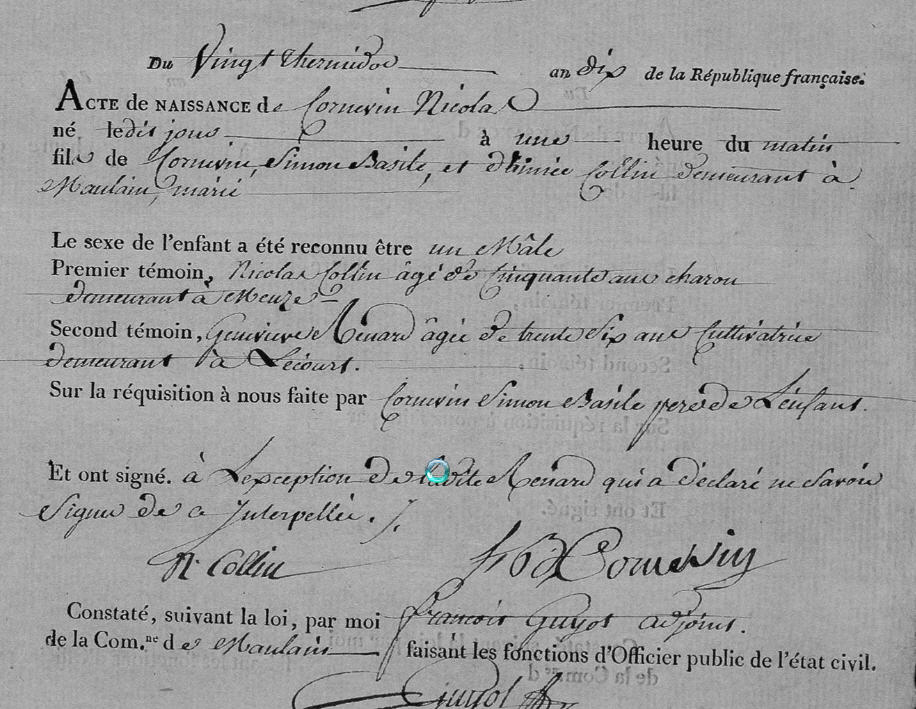 Du Vingt thermidor an dix de la République française.
ACTE de NAISSANCE de Cornevin Nicolas
né ledis jour à une heure du matin
fils de Cornevin, Simon Basile, et d'Aimée Collin demeurant à
Maulain, marié
Le sexe de l'enfant a été reconnu être un Mâle
Premier témoin, Nicolas Collin âgé de Cinquante ans charon
demeurant à Meuze
Second témoin, Genevieve Renard âgée de trente Six ans Cultivatrice
demeurant à Lécourt.
Sur la réquisition à nous faite par Cornevin Simon Basile pere de L'enfant.
Et ont signé. à L'exception de ladite Renard qui a déclaré ne Savoir
Signer de ce Interpellée ./.
N. Collin Cornevin
Constaté, suivant la loi, par moi francois Guyot adjoint.
de la Com.ne de Maulain faisant les fonctions d'Officier public de l'état civil.
Guyot